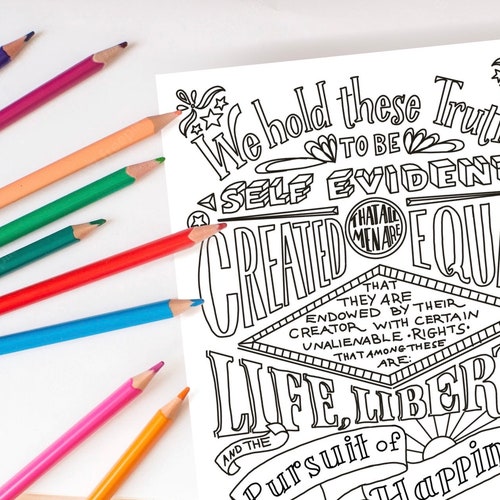 We hold these Truth
TO BE
SELF EVIDENT
CREATED THAT ALL MEN ARE EQUA
THAT
THEY ARE
ENDOWED BY THEIR
CREATOR WITH CERTAIN
UNALIENABLE • RIGHTS •
THAT AMONG THESE
ARE:
LIFE, LIBERT
AND THE
Pursuit of
Happin